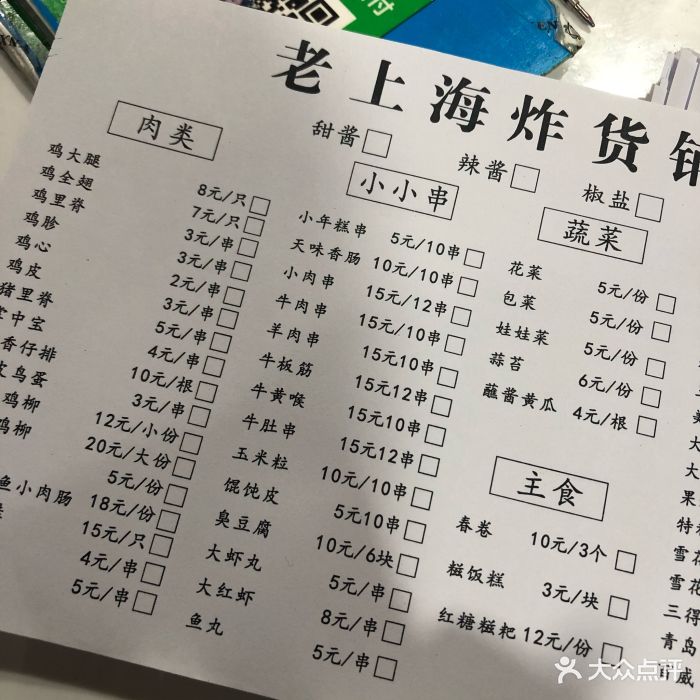 付
老上海炸货铺
甜酱
辣酱
椒盐
肉类
鸡大腿 8元/只
鸡全翅 7元/只
鸡里脊 3元/串
鸡胗 3元/串
鸡心 2元/串
鸡皮 3元/串
猪里脊 5元/串
掌中宝 4元/串
香仔排 10元/根
皮鸟蛋 3元/串
鸡柳 12元/小份
鸡柳 20元/大份
5元/份
鱼小肉肠 18元/份
15元/只
4元/串
5元/串
小小串
小年糕串 5元/10串
天味香肠 10元/10串
小肉串 15元/12串
牛肉串 15元/10串
羊肉串 15元10串
牛板筋 15元12串
牛黄喉 15元10串
牛肚串 15元12串
玉米粒 10元/10串
馄饨皮 5元10串
臭豆腐 10元/6块
大虾丸 5元/串
大红虾 8元/串
鱼丸 5元/串
蔬菜
花菜 5元/份
包菜 5元/份
娃娃菜 5元/份
蒜苔 6元/份
蘸酱黄瓜 4元/根
主食
春卷 10元/3个
糍饭糕 3元/块
红糖糍粑 12元/份
大
大
果
特
雪花
雪花
三得
青岛
百威
大众点评